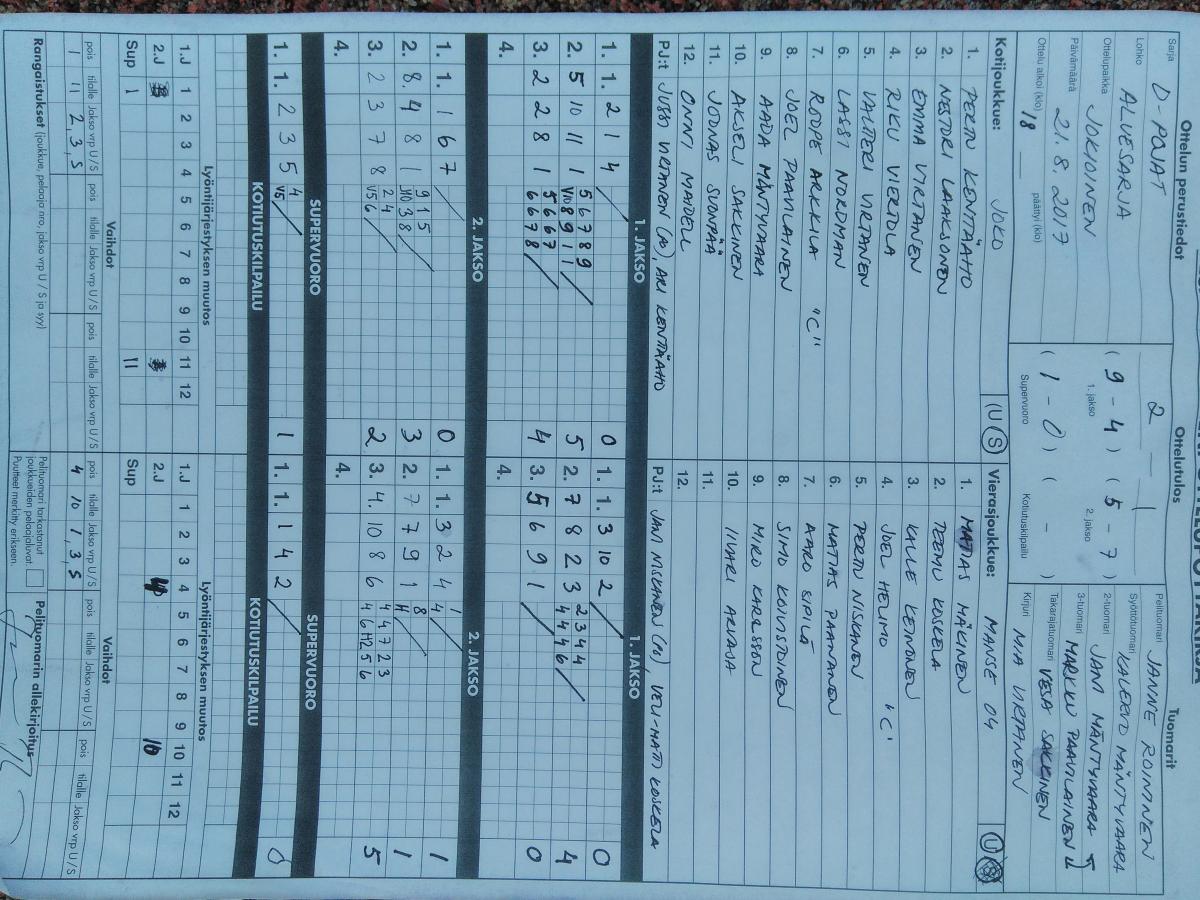 Ottelun perustiedot
Sarja D-POJAT
Lohko ALUESARJA
Ottelupaikka JOKIOINEN
Päivämäärä 21.8.2017
Ottelu alkoi (klo) 18 päättyi (klo)
Ottelutulos
2 - 1
(9 - 4) (5 - 7)
1. jakso 2. jakso
(1 - 0) ( - )
Supervuoro Kotiutuskilpailu
Tuomarit
Pelituomari JANNE ROININEN
Syöttötuomari KALERVO MÄNTYVAARA
2-tuomari JANI MÄNTYVAARA
3-tuomari MARKKU PAAVILAINEN
Takarajatuomari VESA SAKKINEN
Kirjuri MIA VIRTANEN
Kotijoukkue: JOKO U S
1. PERTTU KENTTÄAHO
2. NESTORI LAAKSONEN
3. EMMA VIRTANEN
4. RIKU VIERTOLA
5. VALTTERI VIRTANEN
6. LASSI NORDMAN
7. ROOPE ARKKILA "C"
8. JOEL PAAVILAINEN
9. AADA MÄNTYVAARA
10. AKSELI SAKKINEN
11. JOONAS SUONPÄÄ
12. ONNI MAIDELL
PJ:t JUSSI VIRTANEN (PJ), ARI KENTTÄAHO
Vierasjoukkue: MANSE 04 U
1. MATIAS MÄKINEN
2. TEEMU KOSKELA
3. KALLE KEIMONEN
4. JOEL HELIMO "C"
5. PERTTU NISKANEN
6. MATIAS PAANANEN
7. AARO SIPILÄ
8. SIMO KOIVISTOINEN
9. MIRO KARLSSON
10. IIVARI ARVAJA
11.
12.
PJ:t JANI NISKANEN (PJ), VELI-MATTI KOSKELA
1. JAKSO
1. 1. 2 1 4 / 0
2. 5 10 11 1 5 6 7 8 9 V10 8 9 1 1 / 5
3. 2 2 8 1 5 6 6 7 6 6 7 8 / 4
4.
1. JAKSO
1. 1. 3 10 2 / 0
2. 7 8 2 3 2 3 4 4 4 4 4 6 / 4
3. 5 6 9 1 / 0
4.
2. JAKSO
1. 1. 1 6 7 / 0
2. 8. 4 8 1 9 1 5 V10 3 8 / 3
3. 2 3 7 8 2 4 V5 6 / 2
4.
2. JAKSO
1. 1. 3 2 4 1 4 / 1
2. 7 7 9 1 8 H / 1
3. 4. 10 8 6 4 4 7 2 3 4 6 H2 5 6 5
4.
SUPERVUORO
1. 1. 2 3 5 4 V5 / 1
SUPERVUORO
1. 1. 1 4 2 / 0
KOTIUTUSKILPAILU
KOTIUTUSKILPAILU
Lyöntijärjestyksen muutos
1.J 1 2 3 4 5 6 7 8 9 10 11 12
2.J
Sup 1 11
Lyöntijärjestyksen muutos
1.J 1 2 3 4 5 6 7 8 9 10 11 12
2.J 10
Sup
Vaihdot
pois tilalle Jakso vrp U/S pois tilalle Jakso vrp U/S pois tilalle Jakso vrp U/S
1 11 2,3,S
Vaihdot
pois tilalle Jakso vrp U/S pois tilalle Jakso vrp U/S pois tilalle Jakso vrp U/S
4 10 1,3,S
Rangaistukset (joukkue, pelaaja nro, jakso vrp U / S ja syy)
Pelituomari tarkastanut
joukkueiden pelaajaluvat
Puutteet merkitty erikseen.
Pelituomarin allekirjoitus